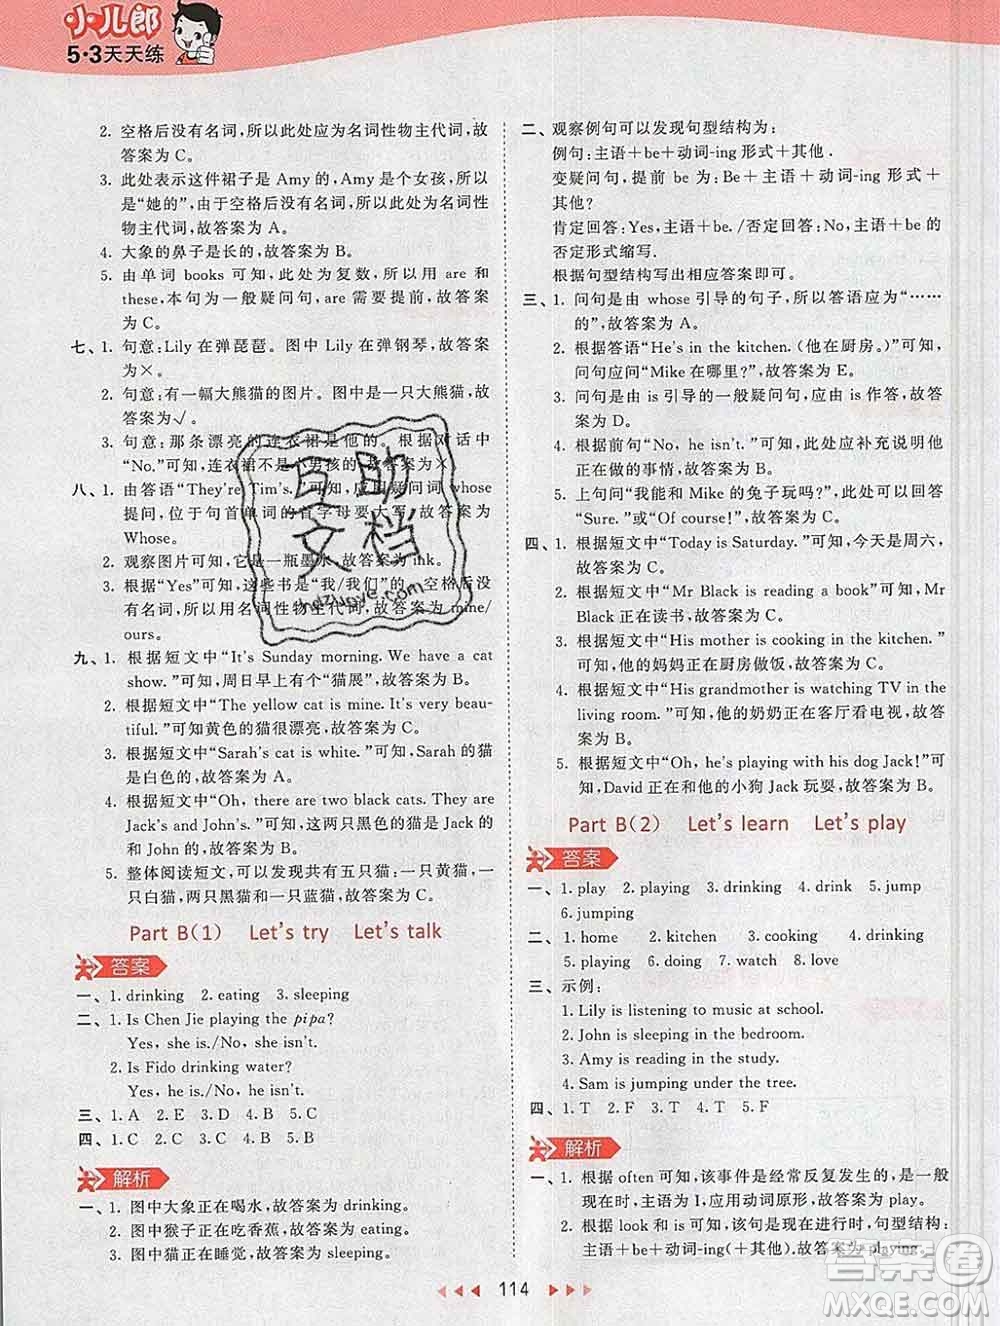 小儿郎
5·3天天练
2. 空格后没有名词,所以此处应为名词性物主代词,故
答案为 C。
3. 此处表示这件裙子是 Amy 的,Amy 是个女孩,所以
是“她的”,由于空格后没有名词,所以此处为名词性
物主代词,故答案为 A。
4. 大象的鼻子是长的,故答案为 B。
5. 由单词 books 可知,此处为复数,所以用 are 和
these,本句为一般疑问句,are 需要提前,故答案
为 C。
七、1. 句意:Lily 在弹琵琶。图中 Lily 在弹钢琴,故答案
为×。
2. 句意:有一幅大熊猫的图片。图中是一只大熊猫,故
答案为√。
3. 句意:那条漂亮的连衣裙是他的。根据对话中
“No.”可知,连衣裙不是男孩的,故答案为×。
八、1. 由答语“They're Tim's.”可知,应用疑问词 whose
提问,位于句首单词的首字母要大写,故答案为
Whose。
2. 观察图片可知,它是一瓶墨水,故答案为 ink。
3. 根据“Yes”可知,这些书是“我/我们”的,空格后没
有名词,所以用名词性物主代词,故答案为 mine/
ours.
九、1. 根据短文中“It's Sunday morning. We have a cat
show.”可知,周日早上有“猫展”,故答案为 B。
2. 根据短文中“The yellow cat is mine. It's very beau-
tiful.”可知黄色的猫很漂亮,故答案为 C。
3. 根据短文中“Sarah's cat is white.”可知,Sarah 的猫
是白色的,故答案为 A。
4. 根据短文中“Oh, there are two black cats. They are
Jack's and John's.”可知,这两只黑色的猫是 Jack 的
和 John 的,故答案为 B。
5. 整体阅读短文,可以发现共有五只猫:一只黄猫,一
只白猫,两只黑猫和一只蓝猫,故答案为 C。
Part B(1) Let's try Let's talk
答案
一、1. drinking 2. eating 3. sleeping
二、1. Is Chen Jie playing the pipa?
Yes, she is./No, she isn't.
2. Is Fido drinking water?
Yes, he is./No, he isn't.
三、1. A 2. E 3. D 4. B 5. C
四、1. A 2. C 3. C 4. B 5. C
解析
一、1. 图中大象正在喝水,故答案为 drinking.
2. 图中猴子正在吃香蕉,故答案为 eating.
3. 图中猫正在睡觉,故答案为 sleeping.
二、观察例句可以发现句型结构为:
例句:主语＋be＋动词-ing 形式＋其他.
变疑问句,提前 be 为:Be＋主语＋动词-ing 形式＋
其他?
肯定回答:Yes,主语＋be. /否定回答:No,主语＋be 的
否定形式缩写.
根据句型结构写出相应答案即可。
三、1. 问句是由 whose 引导的句子,所以答语应为“……
的”,故答案为 A。
2. 根据答语“He's in the kitchen. (他在厨房。)”可知,
问句应问“Mike 在哪里?”,故答案为 E。
3. 问句是由 is 引导的一般疑问句,应由 is 作答,故答
案为 D。
4. 根据前句“No, he isn't.”可知,此处应补充说明他
正在做的事情,故答案为 B。
5. 上句问“我能和 Mike 的兔子玩吗?”,可以回答
“Sure.”或“Of course!”,故答案为 C。
四、1. 根据短文中“Today is Saturday.”可知,今天是周六,
故答案为 A。
2. 根据短文中“Mr Black is reading a book”可知,Mr
Black 正在读书,故答案为 C。
3. 根据短文中“His mother is cooking in the kitchen.”
可知,他的妈妈正在厨房做饭,故答案为 C。
4. 根据短文中“His grandmother is watching TV in the
living room.”可知,他的奶奶正在客厅看电视,故答
案为 B。
5. 根据短文中“Oh, he's playing with his dog Jack!”可
知,David 正在和他的小狗 Jack 玩耍,故答案为 C。
Part B(2) Let's learn Let's play
答案
一、1. play 2. playing 3. drinking 4. drink 5. jump
6. jumping
二、1. home 2. kitchen 3. cooking 4. living
5. playing 6. doing 7. watch 8. love
三、示例:
1. Lily is listening to music at school.
2. John is sleeping in the bedroom.
3. Amy is reading in the study.
4. Sam is jumping under the tree.
四、1. T 2. F 3. F 4. T 5. F
解析
一、1. 根据 often 可知,该事件是经常反复发生的,是一般
现在时,主语为 I,应用动词原形,故答案为 play。
2. 根据 look 和 is 可知,该句是现在进行时,句型结构:
主语＋be＋动词-ing(＋其他).故答案为 playing。
114
互助
文档
hdzuoye.com
答案圈
MXQE.COM